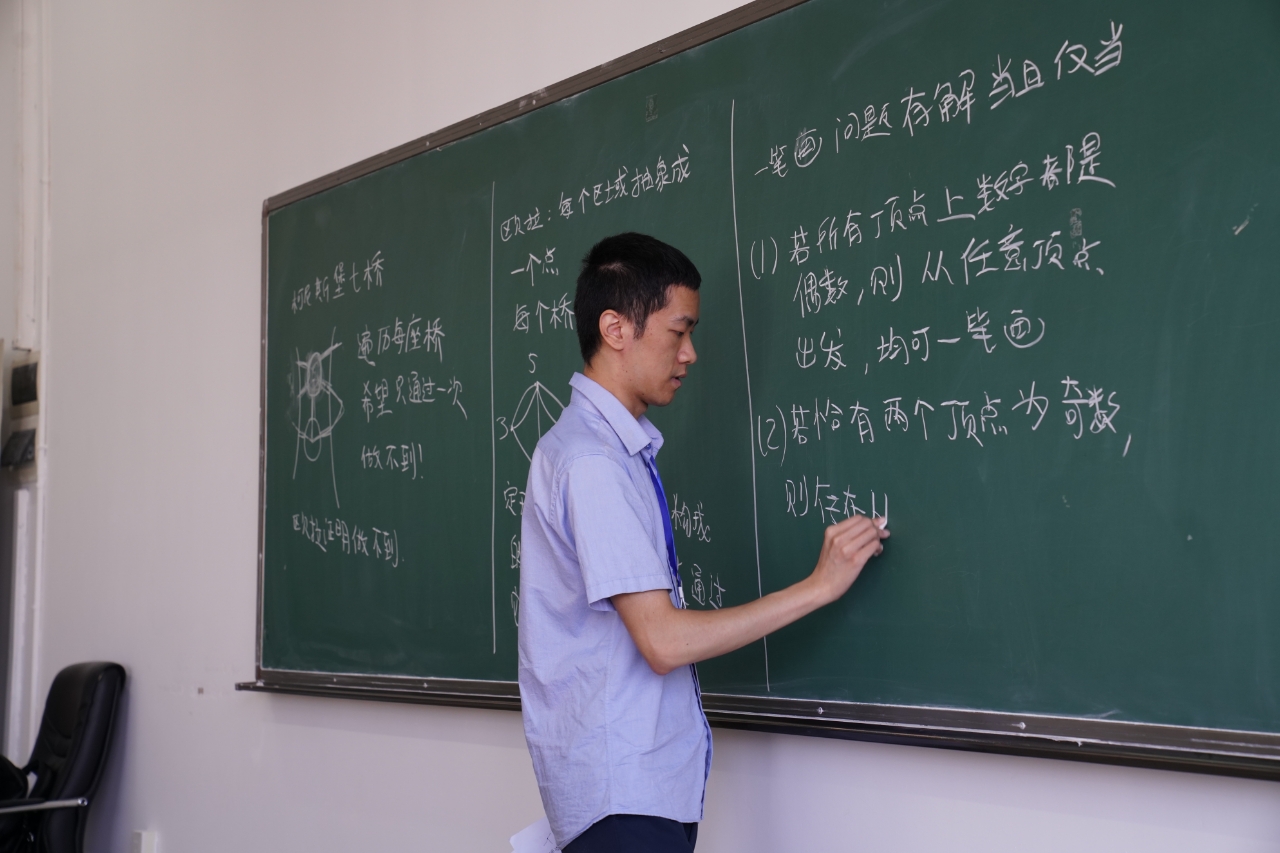 柯尼斯堡七桥
遍历每座桥
希望只通过一次
做不到!
欧拉证明做不到.
欧拉:每个区域抽象成
一个点
每个桥
5
3
定
构成
通过
一笔画问题存解当且仅当
(1) 若所有顶点上数字都是
偶数,则从任意顶点
出发,均可一笔画
(2) 若恰有两个顶点为奇数,
则存在从